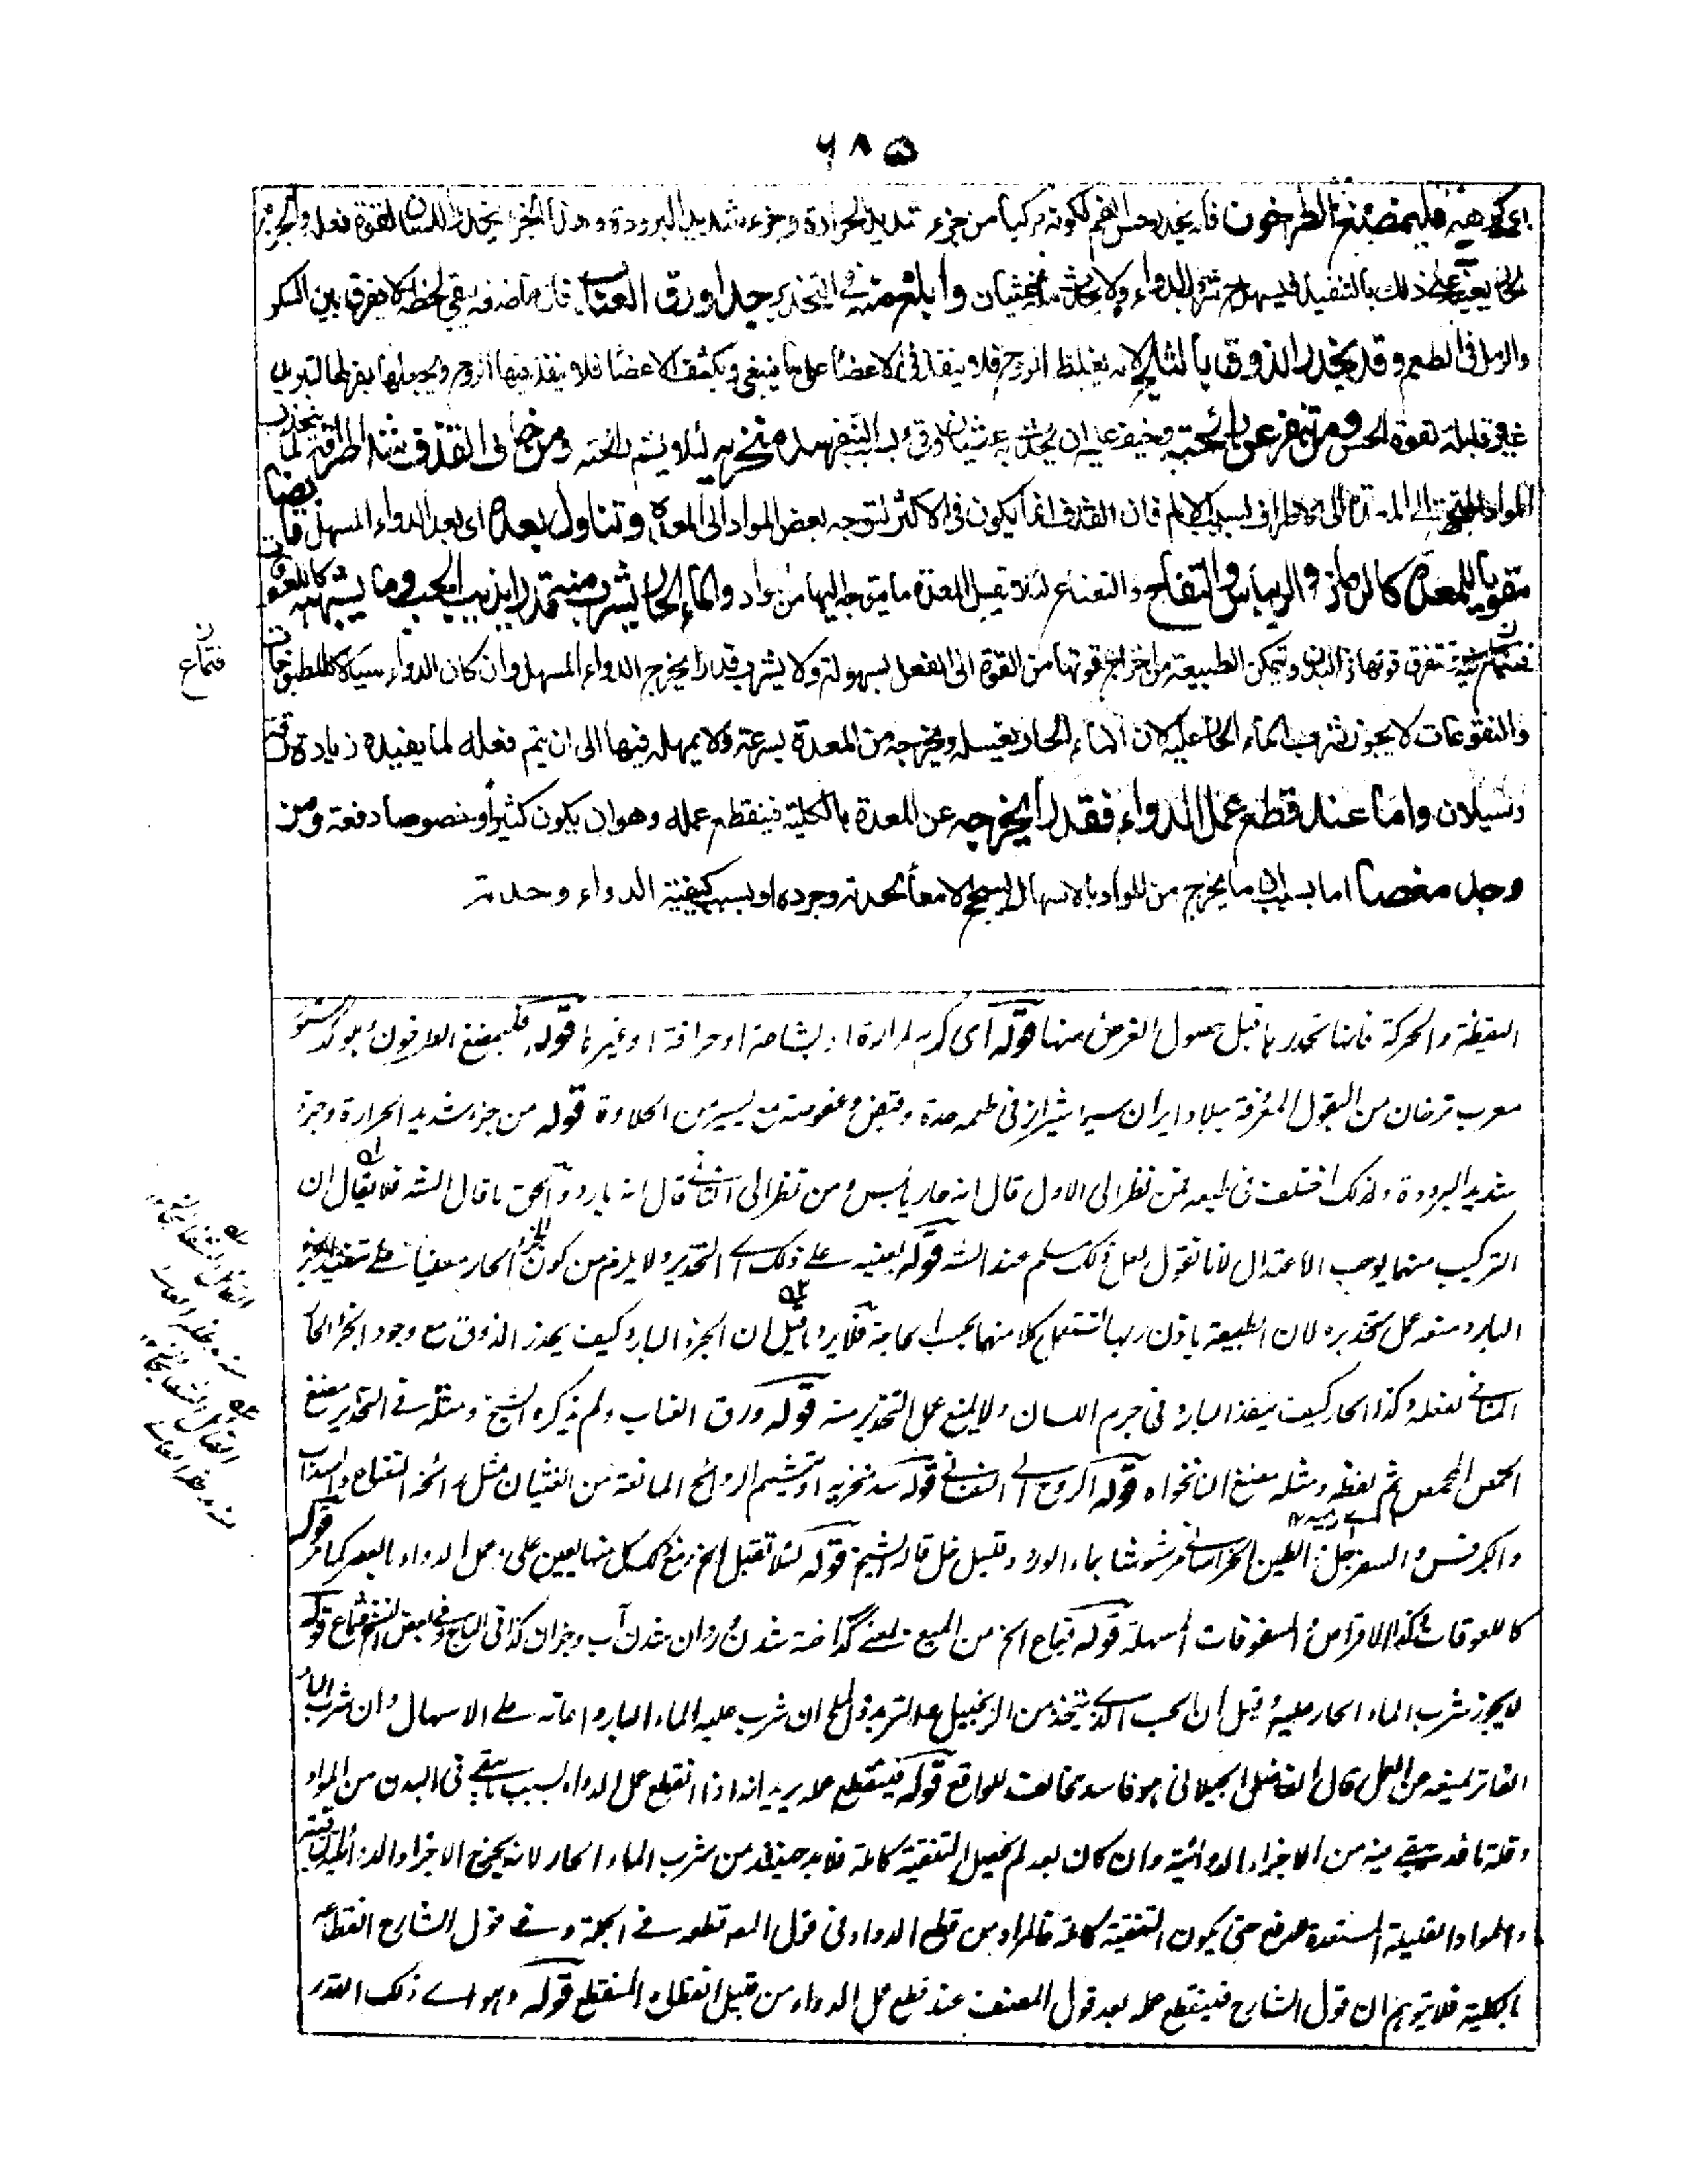 ٦٨٥
اى كريهة فليمضغ الطرخون فانه يخدر حس الفم لكونه مركبا من جزء شديد الحرارة وجزء شديد البرودة وهذا الجزء يخدر اللسان لقوة فعله والجزء
الحار يعينه على ذلك بالتنفيذ فيسهل شرب الدواء ولا يحدث منه غثيان وابلغ منه فى التخدير جدا ورق العناب فان ماضغه يبقى لحظة لا يفرق بين السكر
والرمل فى الطعم وقد يخدر الذوق بالثلج لانه يغلظ الروح فلا ينفذ فى الاعضاء على ما ينبغى ويكثف الاعضاء فلا ينفذ فيها الروح ويجعلها بفرط التبريد
غير قابلة لقوة الحس ومن تنفر عن رائحته وخيف عليه ان يحدث به غثيان وقىء بسبب التنفر سد منخريه لئلا يشم رائحته ومن خاف القذف شد اطرافه لما ينجذب
المواد المتحركة الى المعدة الى الاطراف بسبب الايلام فان القذف انما يكون فى الاكثر لتوجه بعض المواد الى المعدة وتناول بعده اى بعد الدواء المسهل قابضا
مقويا للمعدة كالرمان والريباس والتفاح والنعناع لئلا تقبل المعدة ما يتوجه اليها من مواد والماء الحار يشرب منه بقدر ما يذيب الحب وما يشبهه كاللعوقات
فتنماع تفرق قوتها فى البدن وتتمكن الطبيعة من اخراج قوتها من القوة الى الفعل بسهولة ولا يشرب قدرا يخرج الدواء المسهل وان كان الدواء سيالا كالمطبوخات
فتماع
والنقوعات لا يجوز شرب الماء الحار عليه لان الماء الحار يغسله ويخرجه من المعدة بسرعة ولا يمهله فيها الى ان يتم فعله لما يفيده زيادة رقة
وسيلان واما عند قطع عمل الدواء فقدرا يخرجه عن المعدة بالكلية فينقطع عمله وهو ان يكون كثيرا وخصوصا دفعة ومن
وجد مغصا اما بسبب ان ما يخرج من المواد بالاسهال يسحج الامعاء لحدته وجرده او بسبب كيفية الدواء وحدته
اليقظة والحركة فانها تخدر ما قبل حصول الغرض منها قوله اى كريه لمرارة او بشاعة او حرافة او غيرها قوله فليمضغ الطرخون
معرب ترخان من البقول المعروفة ببلاد ايران سيما شيراز فى طعمه حدة وقبض وعفوصة مع يسير من الحلاوة قوله من جزء شديد الحرارة وجزء
شديد البرودة ولذلك اختلف فى طبعه فمن نظر الى الاول قال انه حار يابس ومن نظر الى الثانى قال انه بارد والحق ما قال الشه فلا يقال ان
التركيب منهما يوجب الاعتدال لانا نقول لعل ذلك مسلم عند الشه قوله يعينه على ذلك اى التخدير ولا يلزم من كون الجزء الحار معينا على تنفيذ الجزء
البارد منعه عمل تخديره لان الطبيعة باذن ربها تستعمل كلا منهما بحسب الحاجة فلا يرد ما قيل ان الجزء البارد كيف يخدر الذوق مع وجود الجزء الحار
المنافى لفعله وكذا الحار كيف ينفذ البارد فى جرم اللسان ولا يمنع عمل التخدير منه قوله ورق العناب ولم يذكره الشيخ ومثله فى التخدير مضغ
الحمص المحمص ثم لفظه ومثله مضغ النانخواه قوله الروح اى النفسانى قوله سد منخريه او تشميم الروائح المانعة من الغثيان مثل رائحة النعناع والسذاب
والكرفس والسفرجل والطين الخراسانى مرشوشا بماء الورد وقليل خل قاله الشيخ قوله لئلا تقبل الخ ومع ذلك كل منها يعين على عمل الدواء بالعصر كما مر قوله
كاللعوقات وكذا الاقراص والسفوفات المسهلة قوله فتماع الخ من الميع بمعنى گداخته شدن وروان شدن آب وجزان كذا فى التاج وفى بعض النسخ فتنماع قوله
لا يجوز شرب الماء الحار عليه قيل ان الحب الذى يتخذ من الزنجبيل والتربد والملح ان شرب عليه الماء البارد اعانه على الاسهال وان شرب الماء
الفاتر يمنعه من العمل قال الفاضل الجيلانى هو فاسد مخالف للواقع قوله فينقطع عمله يريد انه اذا انقطع عمل الدواء بسبب ما بقى فى البدن من المواد
وقلة ما قد بقى منه من الاجزاء الدوائية وان كان بعد لم يحصل التنقية كاملة فلا بد حينئذ من شرب الماء الحار لانه يخرج الاجزاء الدوائية الباقية
والمواد القليلة المستعدة للدفع حتى يكون التنقية كاملة فالمراد من قطع الدواء فى قول المصه قطعه فى الجملة وفى قول الشارح انقطاعه
بالكلية فلا يتوهم ان قول الشارح فينقطع عمله بعد قول المصنف عند قطع عمل الدواء من قبيل انقطاع المنقطع قوله وهو اى ذلك القدر